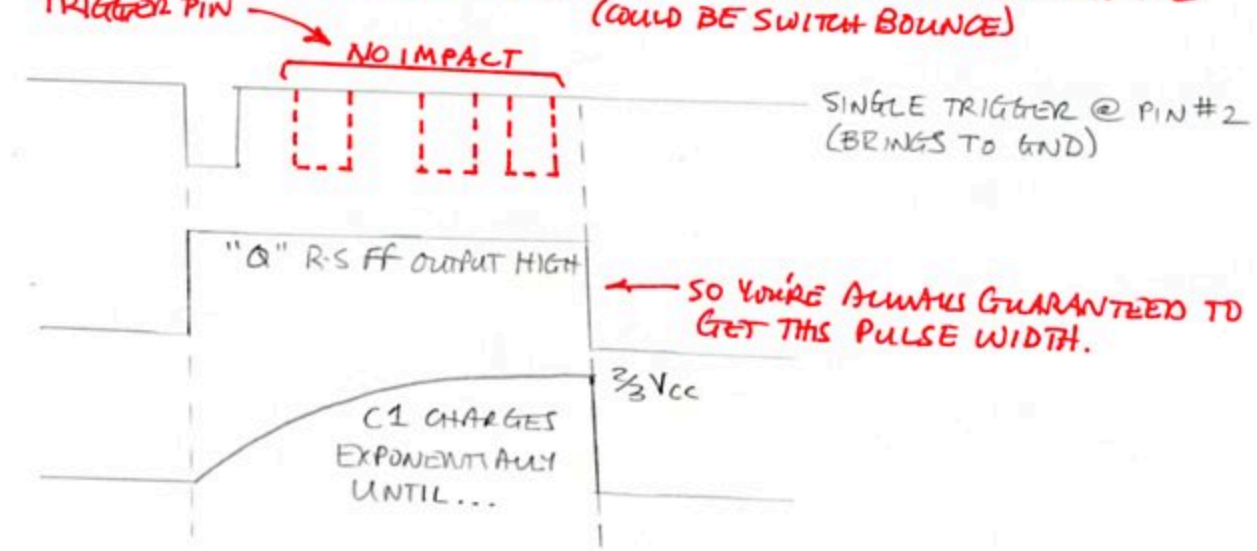 TRIGGER PIN
(COULD BE SWITCH BOUNCE)
NO IMPACT
SINGLE TRIGGER @ PIN #2
(BRINGS TO GND)
"Q" R-S FF OUTPUT HIGH
SO YOU'RE ALWAYS GUARANTEED TO
GET THIS PULSE WIDTH.
2/3 Vcc
C1 CHARGES
EXPONENTIALLY
UNTIL...